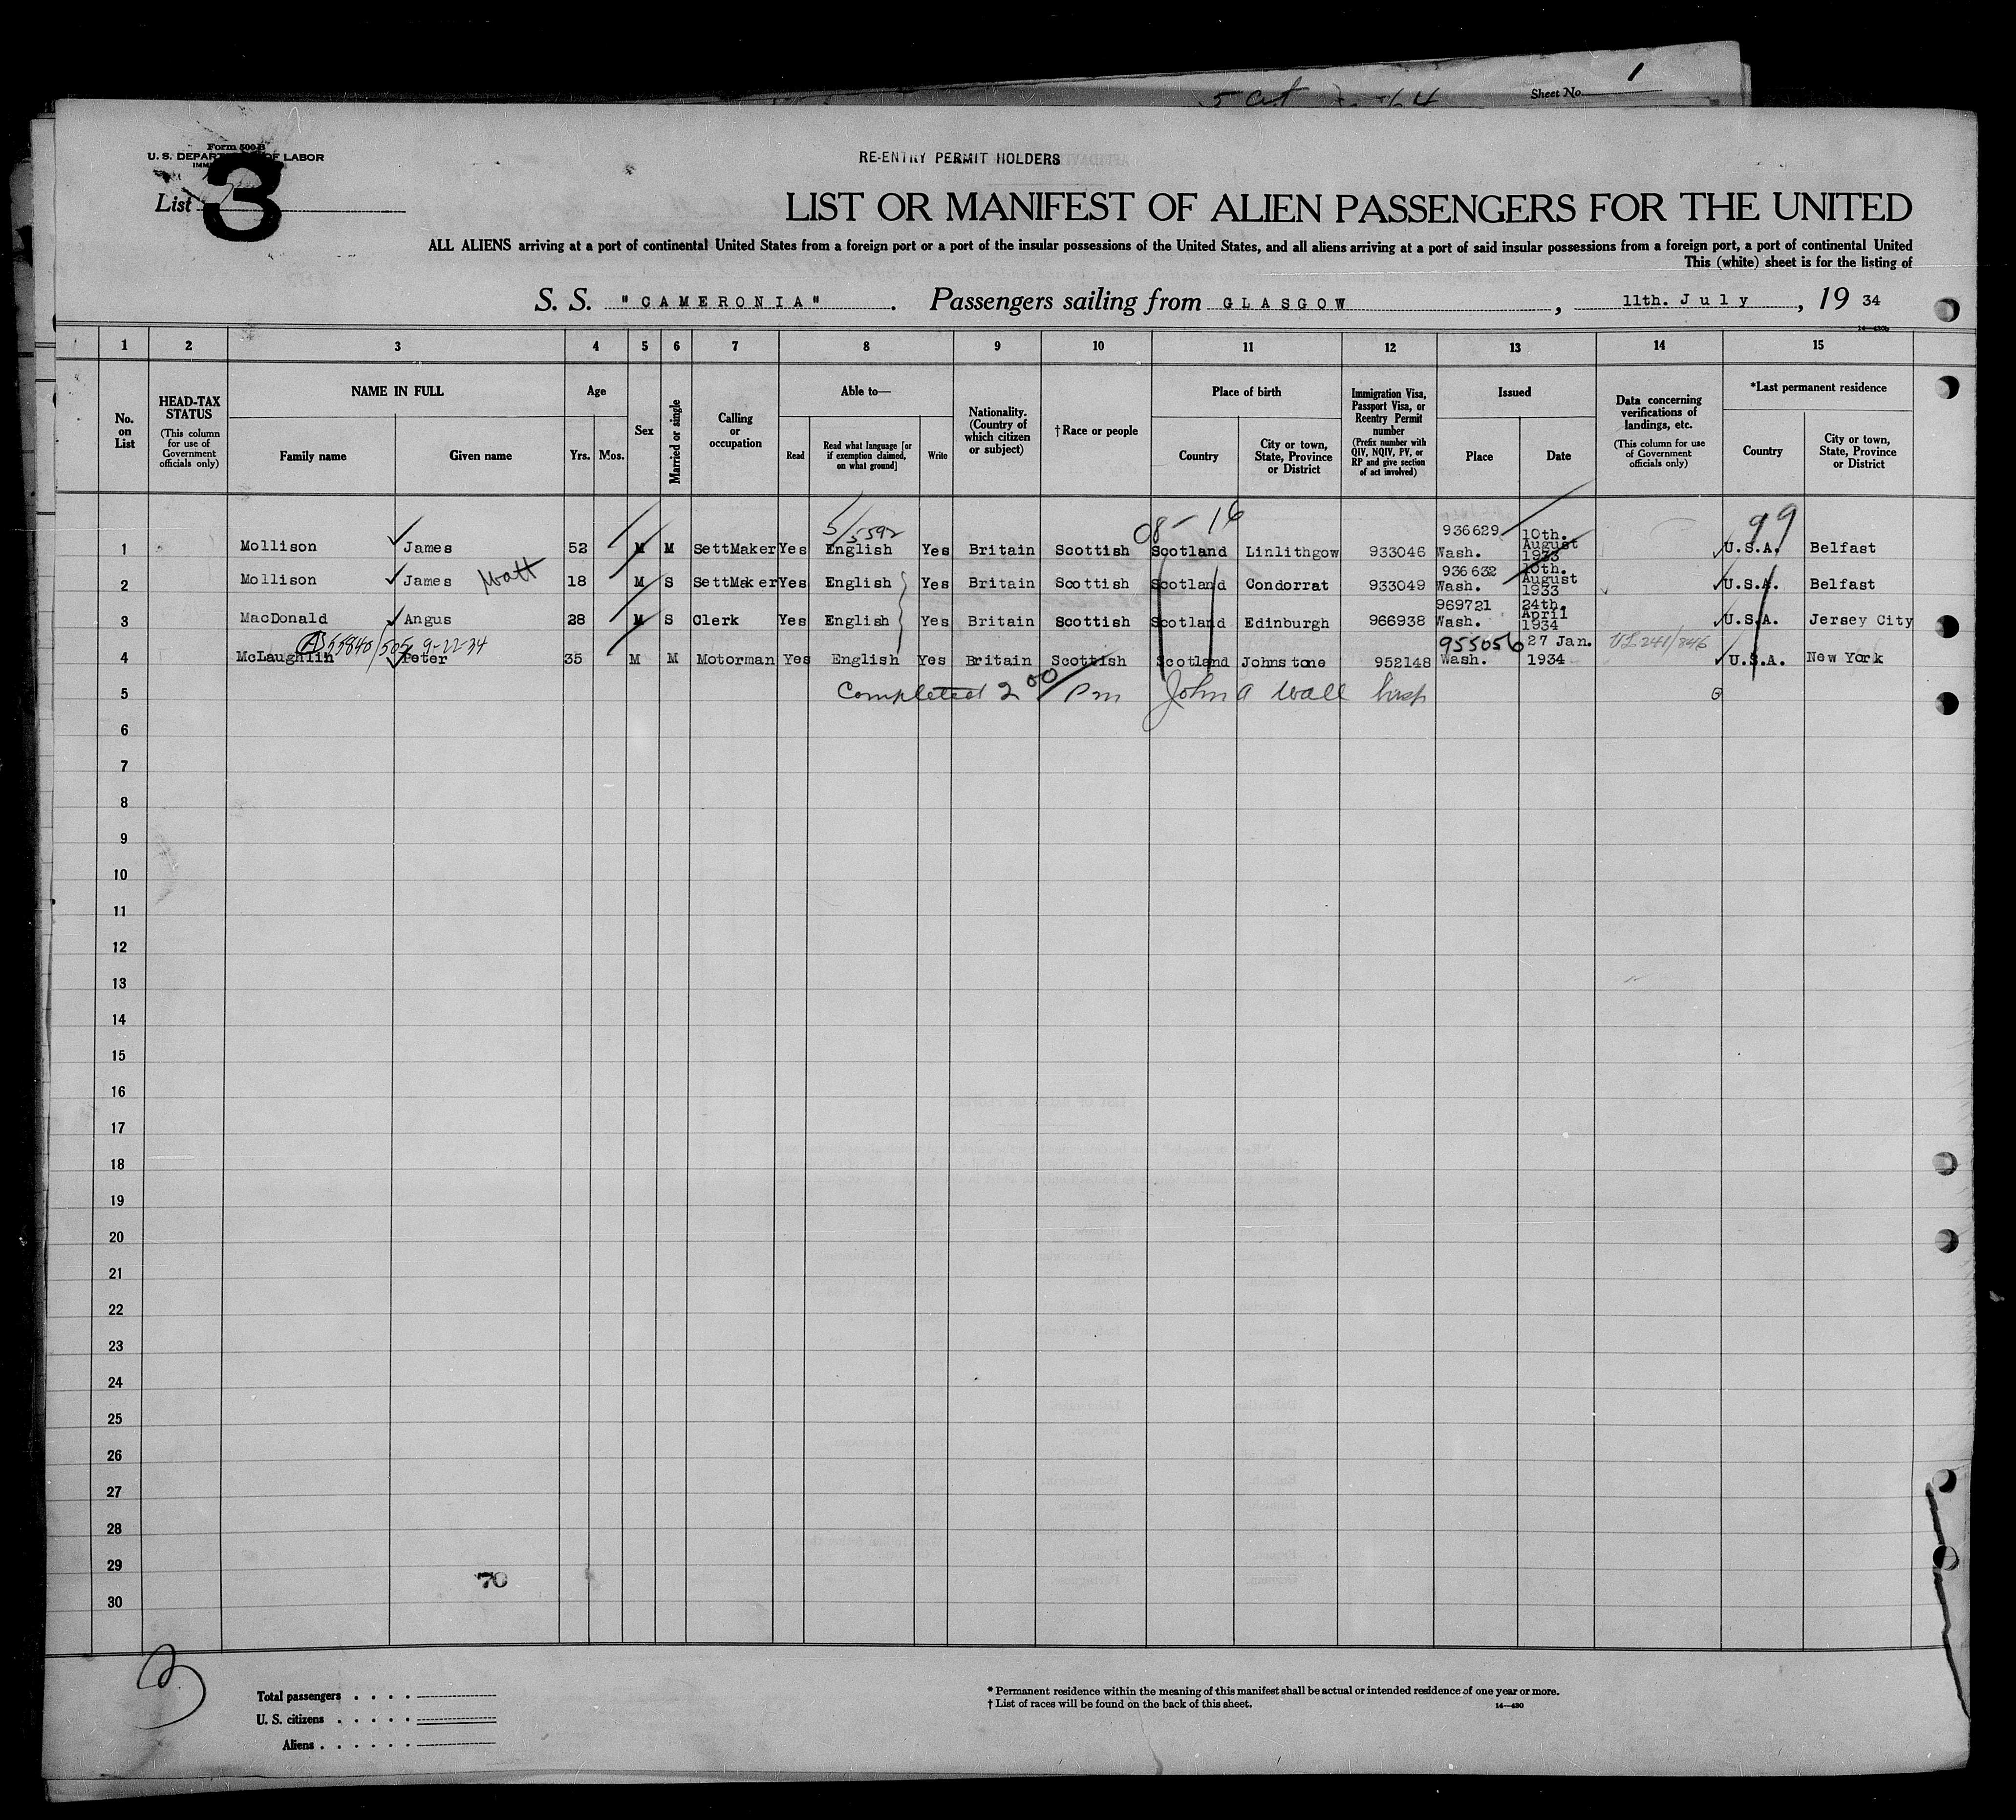 Sheet No. 1
Form 500-B
U. S. DEPARTMENT OF LABOR
List 3
RE-ENTRY PERMIT HOLDERS
LIST OR MANIFEST OF ALIEN PASSENGERS FOR THE UNITED
ALL ALIENS arriving at a port of continental United States from a foreign port or a port of the insular possessions of the United States, and all aliens arriving at a port of said insular possessions from a foreign port, a port of continental United
This (white) sheet is for the listing of
S. S. "CAMERONIA". Passengers sailing from GLASGOW, 11th. July, 19 34
14—430b
1 2 3 4 5 6 7 8 9 10 11 12 13 14 15
No. on List
HEAD-TAX STATUS (This column for use of Government officials only)
NAME IN FULL
Family name Given name
Age
Yrs. Mos.
Sex
Married or single
Calling or occupation
Able to—
Read Read what language [or if exemption claimed, on what ground] Write
Nationality. (Country of which citizen or subject)
†Race or people
Place of birth
Country City or town, State, Province or District
Immigration Visa, Passport Visa, or Reentry Permit number (Prefix number with QIV, NQIV, PV, or RP and give section of act involved)
Issued
Place Date
Data concerning verifications of landings, etc. (This column for use of Government officials only)
*Last permanent residence
Country City or town, State, Province or District
5/5592 08-16 936629 99
1 Mollison James 52 M M SettMaker Yes English Yes Britain Scottish Scotland Linlithgow 933046 Wash. 10th. August 1933 U.S.A. Belfast
Matt 936632
2 Mollison James 18 M S SettMaker Yes English Yes Britain Scottish Scotland Condorrat 933049 Wash. 10th. August 1933 U.S.A. Belfast
969721
3 MacDonald Angus 28 M S Clerk Yes English Yes Britain Scottish Scotland Edinburgh 966938 Wash. 24th. April 1934 U.S.A. Jersey City
A 55840/505 9-22-34 955056
4 McLaughlin Peter 35 M M Motorman Yes English Yes Britain Scottish Scotland Johnstone 952148 Wash. 27 Jan. 1934 VL 241/846 U.S.A. New York
5 Completed 2 00/Pm John A Wall Insp
6
7
8
9
10
11
12
13
14
15
16
17
18
19
20
21
22
23
24
25
26
27
28
29
70
30
Total passengers
U. S. citizens
Aliens
* Permanent residence within the meaning of this manifest shall be actual or intended residence of one year or more.
† List of races will be found on the back of this sheet.
14—430